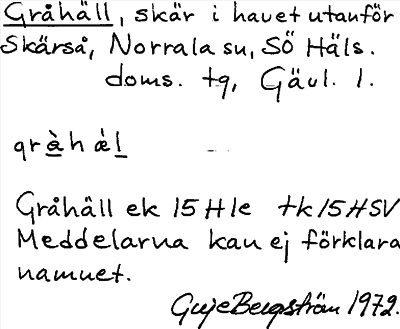 Gråhäll, skär i havet utanför
Skärså, Norrala sn, SÖ Häls.
doms. tg, Gävl. l.
gràhǽl
Gråhäll ek 15 H le tk 15 HSV
Meddelarna kan ej förklara
namnet.
Bergström 1972.